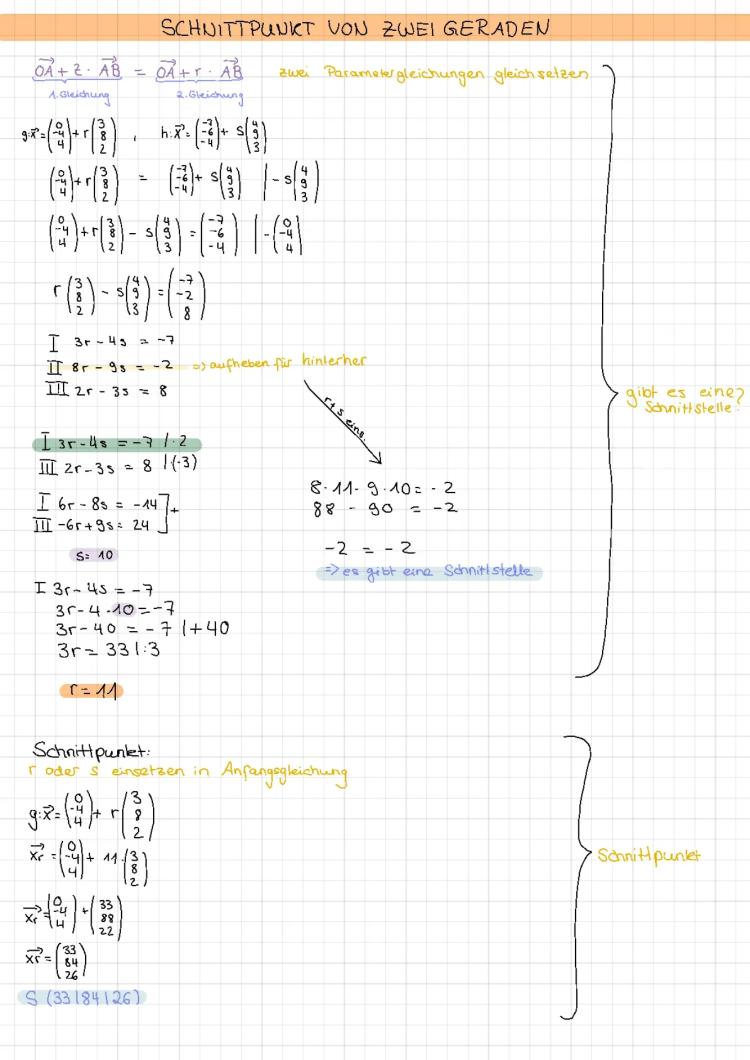 SCHNITTPUNKT VON ZWEI GERADEN
OA + z · AB = OA + r · AB zwei Parametergleichungen gleichsetzen
1. Gleichung 2. Gleichung
g: x⃗ = (0 -4 4) + r (3 8 2) , h: x⃗ = (-7 -6 -4) + s (4 9 3)
(0 -4 4) + r (3 8 2) = (-7 -6 -4) + s (4 9 3) | - s (4 9 3)
(0 -4 4) + r (3 8 2) - s (4 9 3) = (-7 -6 -4) | - (0 -4 4)
r (3 8 2) - s (4 9 3) = (-7 -2 8)
I 3r - 4s = -7
II 8r - 9s = -2 => aufheben für hinterher
III 2r - 3s = 8
r+s eins.
gibt es eine Schnittstelle?
I 3r - 4s = -7 | · 2
III 2r - 3s = 8 | (-3)
I 6r - 8s = -14 ] +
III -6r + 9s = 24
s = 10
8 · 11 - 9 · 10 = -2
88 - 90 = -2
-2 = -2
=> es gibt eine Schnittstelle
I 3r - 4s = -7
3r - 4 · 10 = -7
3r - 40 = -7 | + 40
3r = 33 | : 3
r = 11
Schnittpunkt:
r oder s einsetzen in Anfangsgleichung
g: x⃗ = (0 -4 4) + r (3 8 2)
x⃗r = (0 -4 4) + 11 · (3 8 2)
x⃗r = (0 -4 4) + (33 88 22)
x⃗r = (33 84 26)
S (33 | 84 | 26)
Schnittpunkt